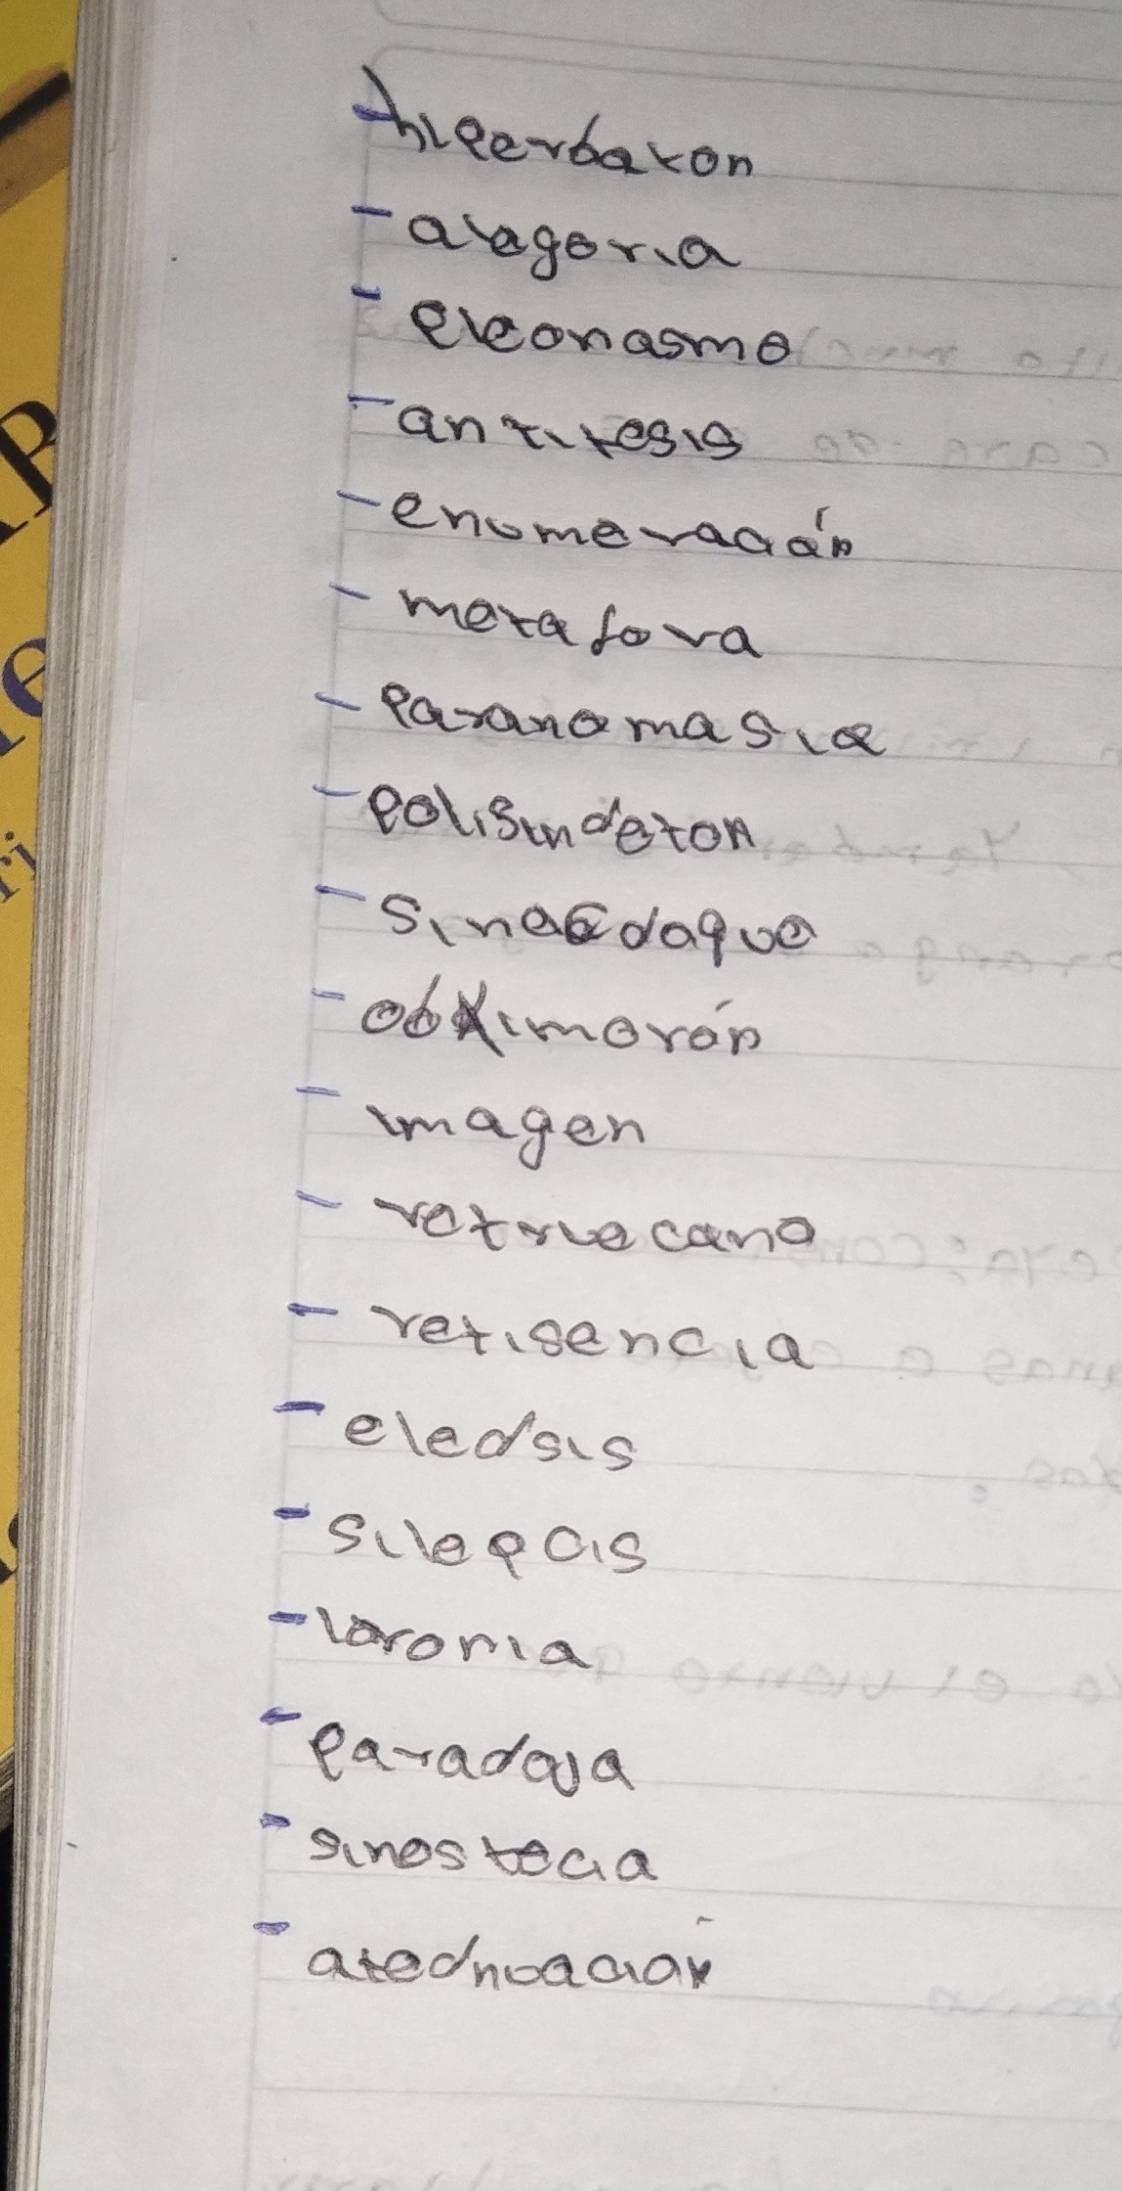 - hiperbaton
- alegoria
- pleonasmo
- antitesis
- enumeración
- metafora
- Paranomasia
- Polisindeton
- Sinecdoque
- imagen
- retruecano
- retisencia
- eledsis
- silepcis
- Paradoja
- sinestecia